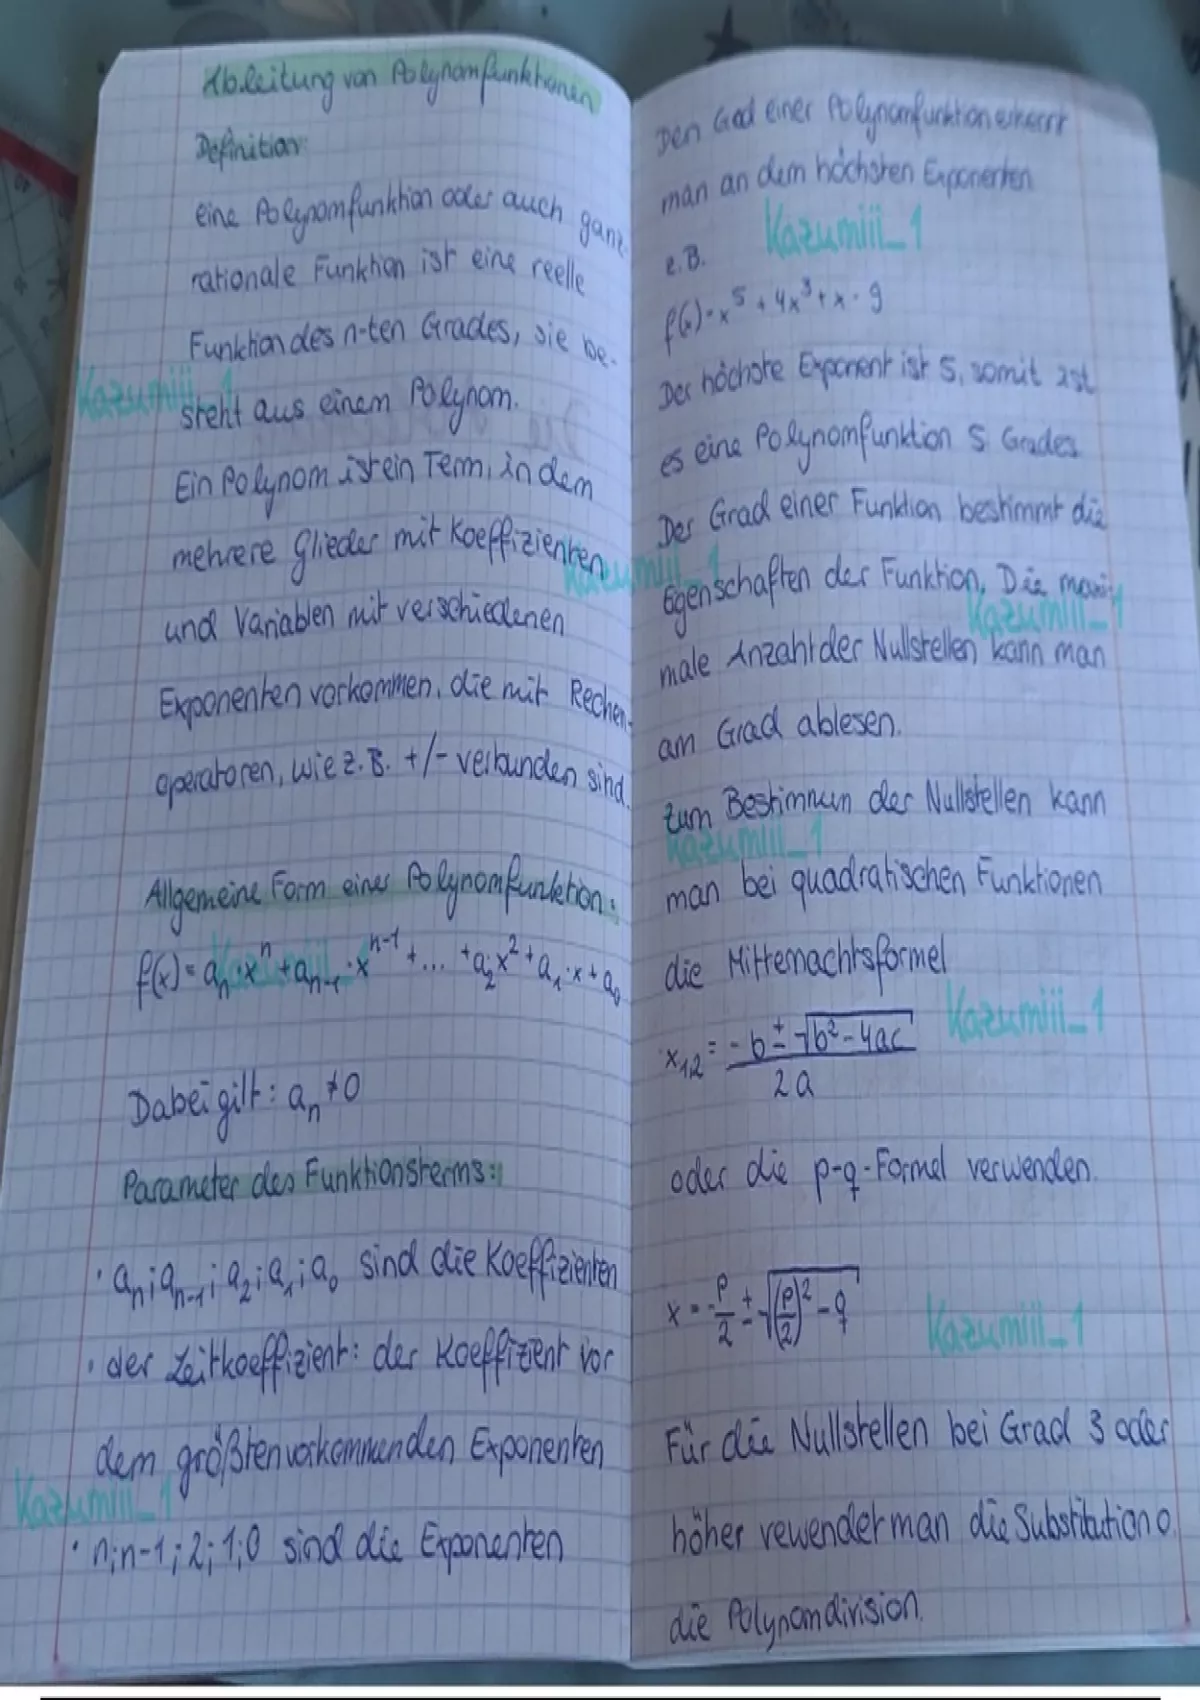 Ableitung von Polynomfunktionen
Definition:
eine Polynomfunktion oder auch ganz-
rationale Funktion ist eine reelle
Funktion des n-ten Grades, sie be-
steht aus einem Polynom.
Ein Polynom ist ein Term, in dem
mehrere Glieder mit Koeffizienten
und Variablen mit verschiedenen
Exponenten vorkommen, die mit Rechen-
operatoren, wie z.B. +/- verbunden sind.
Allgemeine Form einer Polynomfunktion:
f(x) = aₙ·xⁿ + aₙ₋₁·xⁿ⁻¹ + ... + a₂x² + a₁·x + a₀
Dabei gilt: aₙ ≠ 0
Parameter des Funktionsterms:
· aₙ; aₙ₋₁; a₂; a₁; a₀ sind die Koeffizienten
· der Leitkoeffizient: der Koeffizient vor
dem größten vorkommenden Exponenten
· n; n-1; 2; 1; 0 sind die Exponenten
Den Grad einer Polynomfunktion erkennt
man an dem höchsten Exponenten
z.B.
f(x) = x⁵ + 4x³ + x - 9
Der höchste Exponent ist 5, somit ist
es eine Polynomfunktion 5 Grades
Der Grad einer Funktion bestimmt die
Eigenschaften der Funktion. Die maxi-
male Anzahl der Nullstellen kann man
am Grad ablesen.
Zum Bestimmen der Nullstellen kann
man bei quadratischen Funktionen
die Mitternachtsformel
x₁,₂ = (-b ± √(b² - 4ac)) / 2a
oder die p-q-Formel verwenden.
x = -p/2 ± √((p/2)² - q)
Für die Nullstellen bei Grad 3 oder
höher vewendet man die Substitution o
die Polynomdivision.
Kazumiii_1
Kazumiii_1
Kazumiii_1
Kazumiii_1
Kazumiii_1
Kazumiii_1
Kazumiii_1
Kazumiii_1
Kazumiii_1